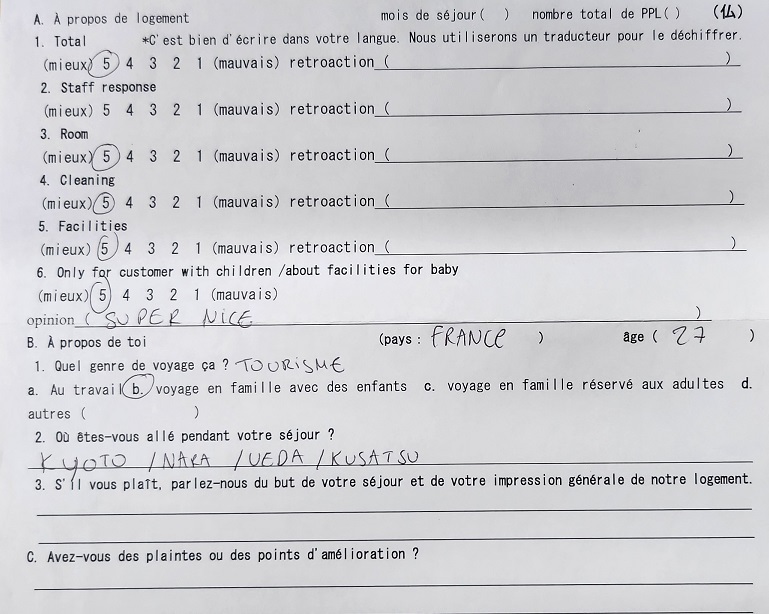 A. À propos de logement mois de séjour( ) nombre total de PPL( ) (14)
1. Total *C'est bien d'écrire dans votre langue. Nous utiliserons un traducteur pour le déchiffrer.
(mieux) 5 4 3 2 1 (mauvais) retroaction ( )
2. Staff response
(mieux) 5 4 3 2 1 (mauvais) retroaction ( )
3. Room
(mieux) 5 4 3 2 1 (mauvais) retroaction ( )
4. Cleaning
(mieux) 5 4 3 2 1 (mauvais) retroaction ( )
5. Facilities
(mieux) 5 4 3 2 1 (mauvais) retroaction ( )
6. Only for customer with children /about facilities for baby
(mieux) 5 4 3 2 1 (mauvais)
opinion ( SUPER NICE )
B. À propos de toi (pays : FRANCE ) âge ( 27 )
1. Quel genre de voyage ça ? TOURISME
a. Au travail b. voyage en famille avec des enfants c. voyage en famille réservé aux adultes d.
autres ( )
2. Où êtes-vous allé pendant votre séjour ?
KYOTO / NARA / UEDA / KUSATSU
3. S'il vous plaît, parlez-nous du but de votre séjour et de votre impression générale de notre logement.
C. Avez-vous des plaintes ou des points d'amélioration ?